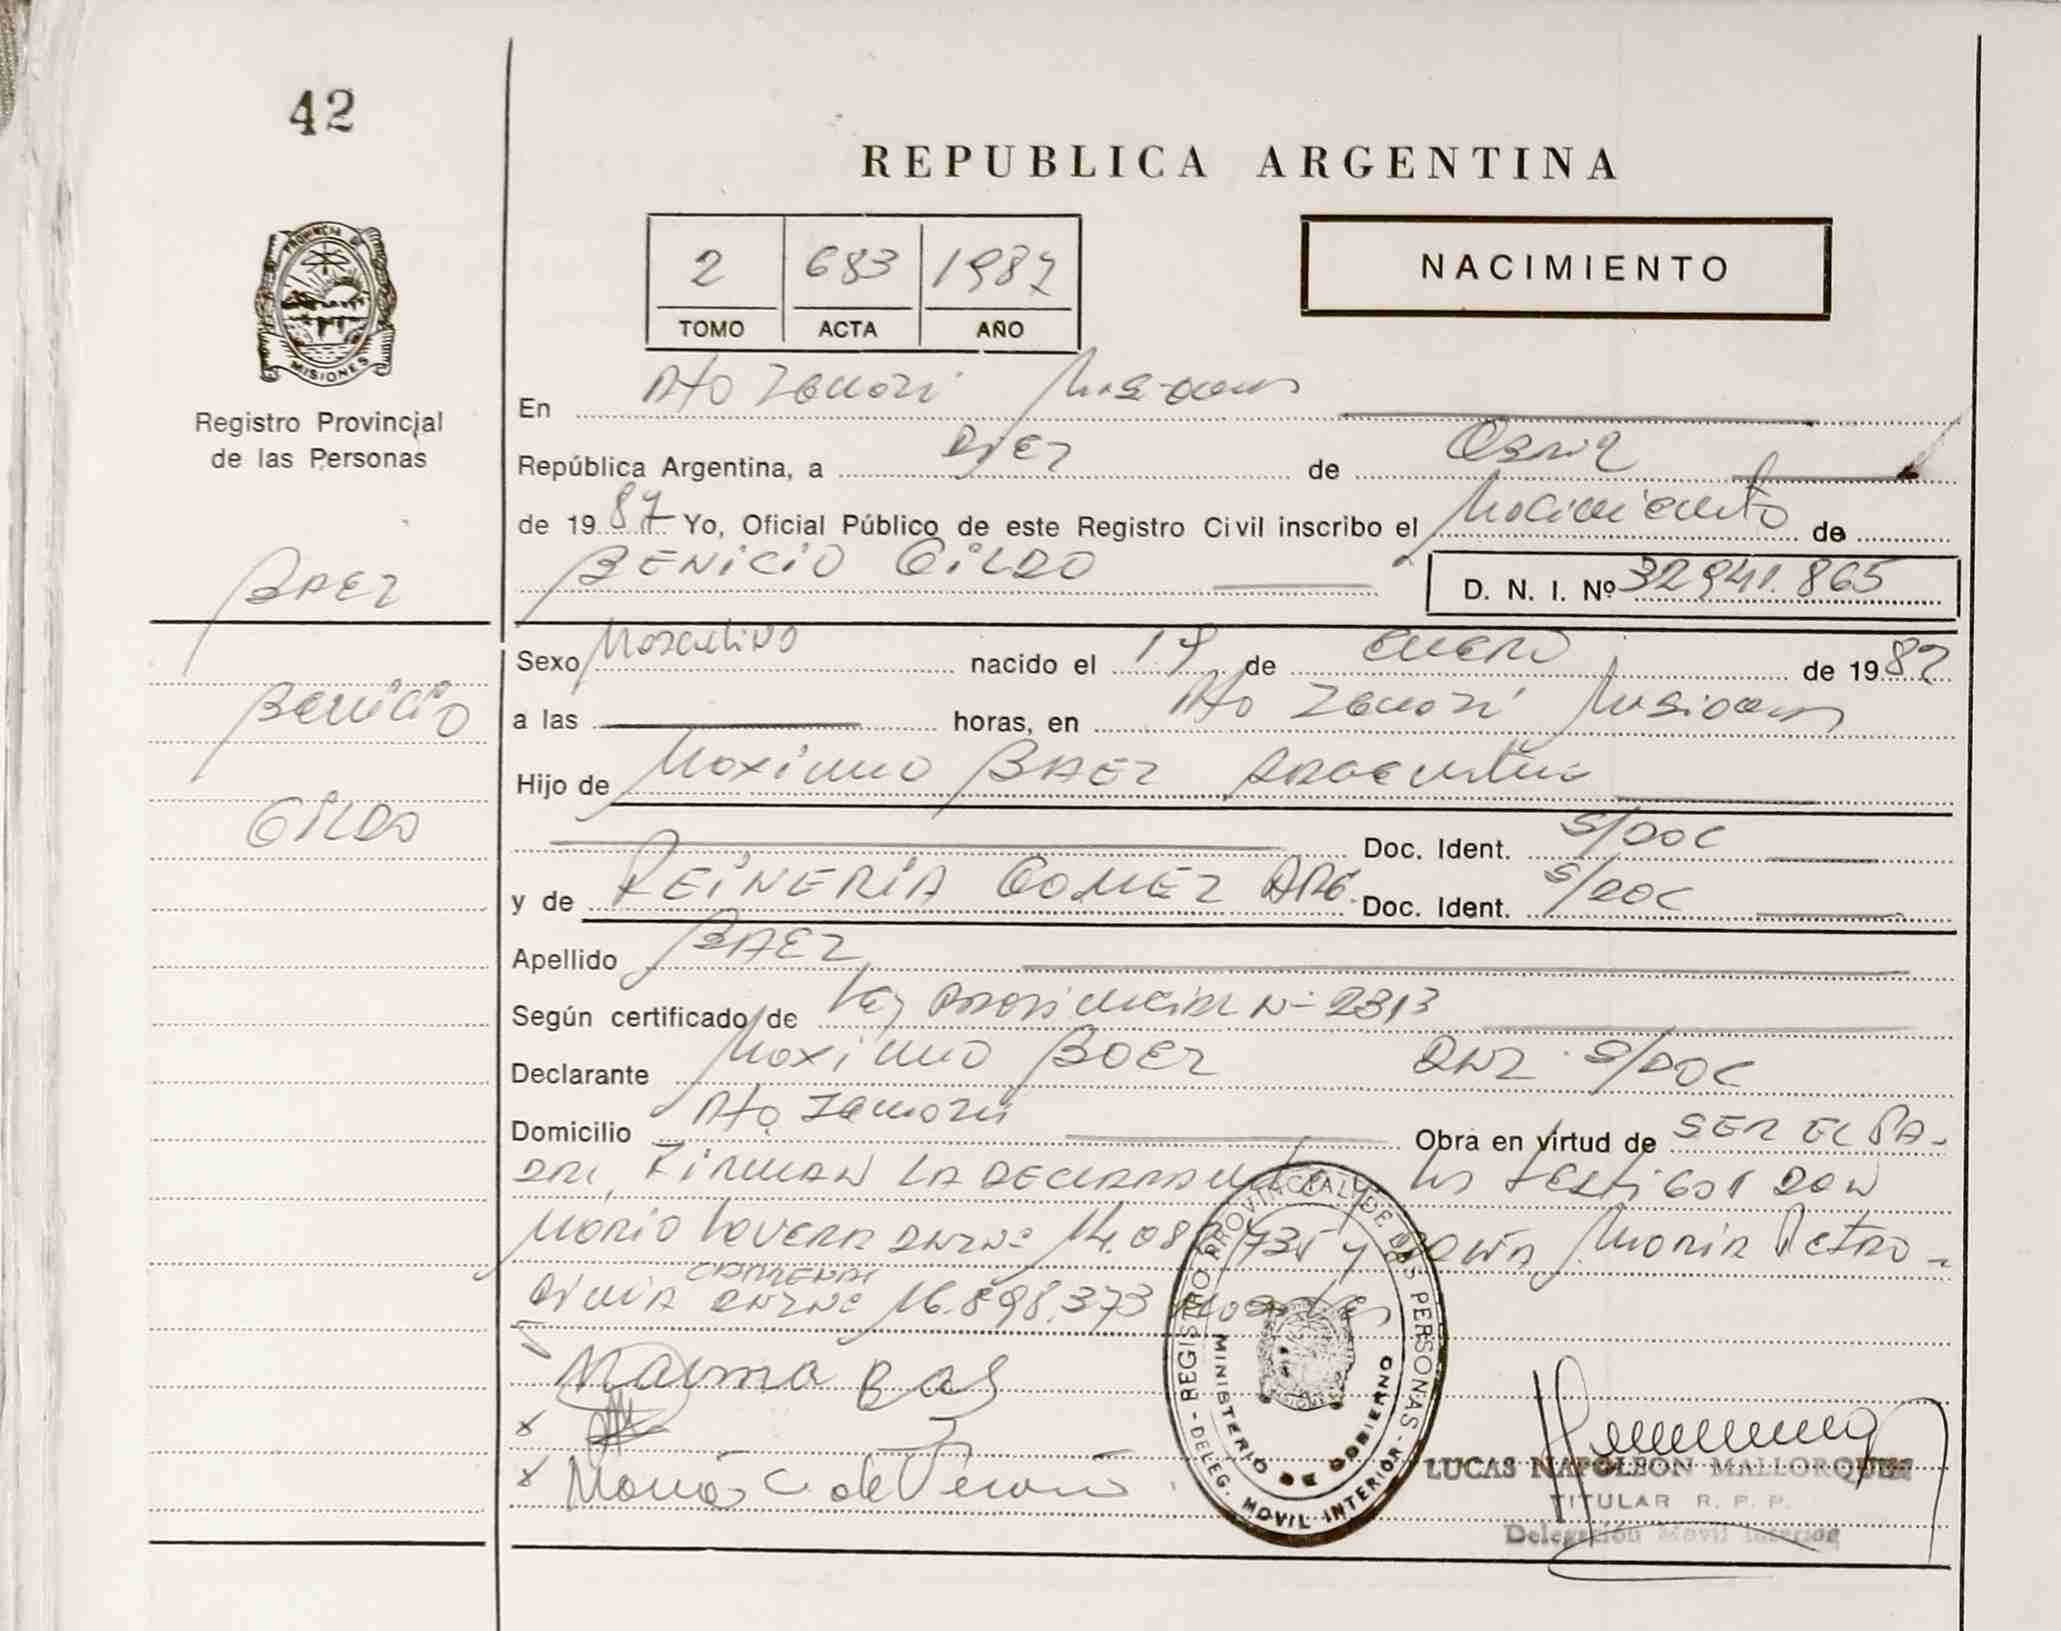 42
REPUBLICA ARGENTINA
PROVINCIA DE
MISIONES
Registro Provincial
de las Personas
2 683 1987
TOMO ACTA AÑO
NACIMIENTO
En Pto Misiones
República Argentina, a Diez de Abril
de 1987 Yo, Oficial Público de este Registro Civil inscribo el Nacimiento de
BENICIO GILDO D. N. I. Nº 32941.865
BAEZ
Benicio
GILDO
Sexo Masculino nacido el 19 de enero de 1987
a las horas, en Pto Misiones
Hijo de Maximo BAEZ Argentino
Doc. Ident. S/DOC
y de REINERIA GOMEZ ARG. Doc. Ident. S/DOC
Apellido BAEZ
Según certificado de Ley Provincial Nº 2313
Declarante Maximo BAEZ DNI S/DOC
Domicilio Pto Obra en virtud de SER EL PA-
DRE, FIRMAN LA DECLARANTE y los testigos DON
MARIO DNI Nº y DOÑA Maria Petro-
CARRENAI
DNI Nº 16.898.373
Maria C. de
REGISTRO PROVINCIAL DE LAS PERSONAS - DELEG. MOVIL INTERIOR -
MINISTERIO DE GOBIERNO
LUCAS NAPOLEON MALLORQUIN
TITULAR R. P. P.
Delegación Movil Interior